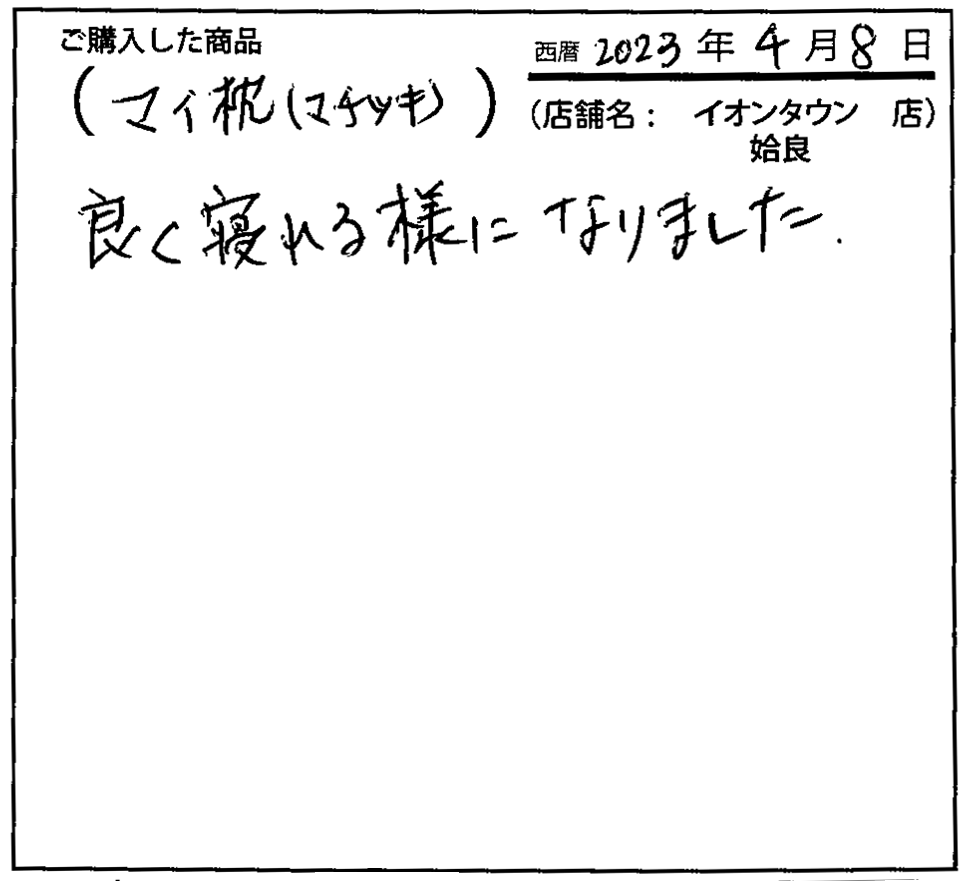 ご購入した商品
西暦 2023 年 4 月 8 日
(マイ枕(マチツキ))
(店舗名： イオンタウン 店)
姶良
良く寝れる様になりました.